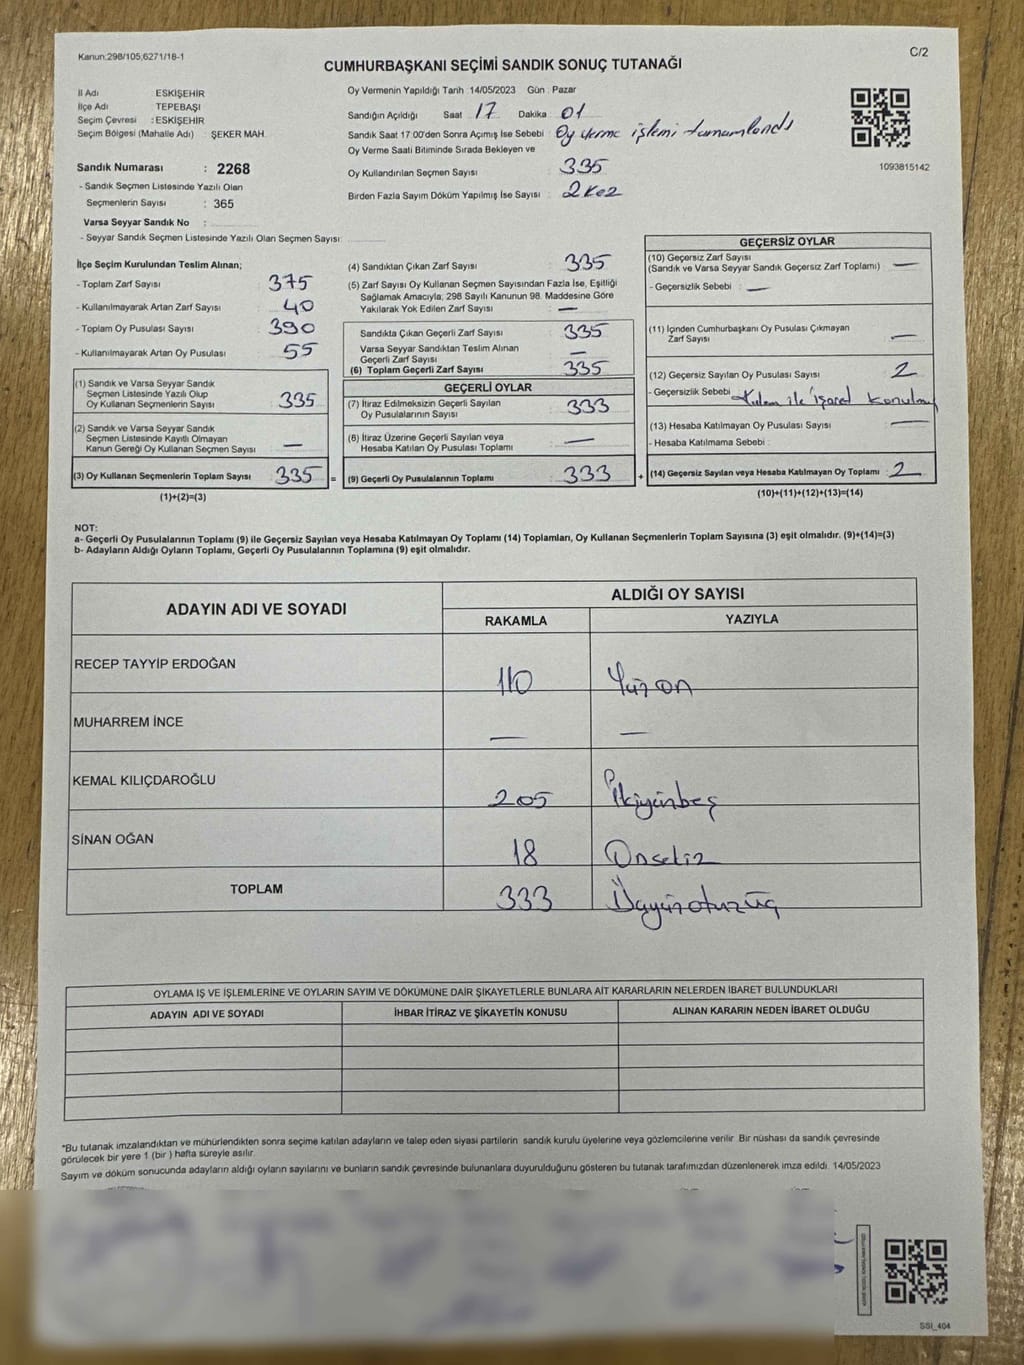 Kanun:298/105,6271/18-1
C/2
CUMHURBAŞKANI SEÇİMİ SANDIK SONUÇ TUTANAĞI
İl Adı ESKİŞEHİR
İlçe Adı TEPEBAŞI
Seçim Çevresi : ESKİŞEHİR
Seçim Bölgesi (Mahalle Adı) : ŞEKER MAH.
Sandık Numarası : 2268
- Sandık Seçmen Listesinde Yazılı Olan
Seçmenlerin Sayısı : 365
Varsa Seyyar Sandık No :
- Seyyar Sandık Seçmen Listesinde Yazılı Olan Seçmen Sayısı:
Oy Vermenin Yapıldığı Tarih 14/05/2023 Gün : Pazar
Sandığın Açıldığı Saat 17 Dakika 01
Sandık Saat 17.00'den Sonra Açımış İse Sebebi : Oy verme işlemi tamamlandı
Oy Verme Saati Bitiminde Sırada Bekleyen ve
Oy Kullandırılan Seçmen Sayısı : 335
Birden Fazla Sayım Döküm Yapılmış İse Sayısı : 2 kez
1093815142
İlçe Seçim Kurulundan Teslim Alınan;
- Toplam Zarf Sayısı : 375
- Kullanılmayarak Artan Zarf Sayısı : 40
- Toplam Oy Pusulası Sayısı : 390
- Kullanılmayarak Artan Oy Pusulası : 55
(1) Sandık ve Varsa Seyyar Sandık
Seçmen Listesinde Yazılı Olup
Oy Kullanan Seçmenlerin Sayısı : 335
(2) Sandık ve Varsa Seyyar Sandık
Seçmen Listesinde Kayıtlı Olmayan
Kanun Gereği Oy Kullanan Seçmen Sayısı : —
(3) Oy Kullanan Seçmenlerin Toplam Sayısı : 335 =
(1)+(2)=(3)
(4) Sandıktan Çıkan Zarf Sayısı : 335
(5) Zarf Sayısı Oy Kullanan Seçmen Sayısından Fazla İse, Eşitliği
Sağlamak Amacıyla; 298 Sayılı Kanunun 98. Maddesine Göre
Yakılarak Yok Edilen Zarf Sayısı : —
Sandıkta Çıkan Geçerli Zarf Sayısı : 335
Varsa Seyyar Sandıktan Teslim Alınan
Geçerli Zarf Sayısı : —
(6) Toplam Geçerli Zarf Sayısı : 335
GEÇERLİ OYLAR
(7) İtiraz Edilmeksizin Geçerli Sayılan
Oy Pusulalarının Sayısı : 333
(8) İtiraz Üzerine Geçerli Sayılan veya
Hesaba Katılan Oy Pusulası Toplamı : —
(9) Geçerli Oy Pusulalarının Toplamı : 333 +
GEÇERSİZ OYLAR
(10) Geçersiz Zarf Sayısı
(Sandık ve Varsa Seyyar Sandık Geçersiz Zarf Toplamı) : —
- Geçersizlik Sebebi : —
(11) İçinden Cumhurbaşkanı Oy Pusulası Çıkmayan
Zarf Sayısı : —
(12) Geçersiz Sayılan Oy Pusulası Sayısı : 2
- Geçersizlik Sebebi : Kalem ile işaret konulmuş
(13) Hesaba Katılmayan Oy Pusulası Sayısı : —
- Hesaba Katılmama Sebebi :
(14) Geçersiz Sayılan veya Hesaba Katılmayan Oy Toplamı : 2
(10)+(11)+(12)+(13)=(14)
NOT:
a- Geçerli Oy Pusulalarının Toplamı (9) ile Geçersiz Sayılan veya Hesaba Katılmayan Oy Toplamı (14) Toplamları, Oy Kullanan Seçmenlerin Toplam Sayısına (3) eşit olmalıdır. (9)+(14)=(3)
b- Adayların Aldığı Oyların Toplamı, Geçerli Oy Pusulalarının Toplamına (9) eşit olmalıdır.
ADAYIN ADI VE SOYADI ALDIĞI OY SAYISI
RAKAMLA YAZIYLA
RECEP TAYYİP ERDOĞAN 110 Yüzon
MUHARREM İNCE — —
KEMAL KILIÇDAROĞLU 205 İkiyüzbeş
SİNAN OĞAN 18 Onsekiz
TOPLAM 333 Üçyüzotuzüç
OYLAMA İŞ VE İŞLEMLERİNE VE OYLARIN SAYIM VE DÖKÜMÜNE DAİR ŞİKAYETLERLE BUNLARA AİT KARARLARIN NELERDEN İBARET BULUNDUKLARI
ADAYIN ADI VE SOYADI İHBAR İTİRAZ VE ŞİKAYETİN KONUSU ALINAN KARARIN NEDEN İBARET OLDUĞU
*Bu tutanak imzalandıktan ve mühürlendikten sonra seçime katılan adayların ve talep eden siyasi partilerin sandık kurulu üyelerine veya gözlemcilerine verilir. Bir nüshası da sandık çevresinde
görülecek bir yere 1 (bir) hafta süreyle asılır.
Sayım ve döküm sonucunda adayların aldığı oyların sayılarını ve bunların sandık çevresinde bulunanlara duyurulduğunu gösteren bu tutanak tarafımızdan düzenlenerek imza edildi. 14/05/2023
SSI_404